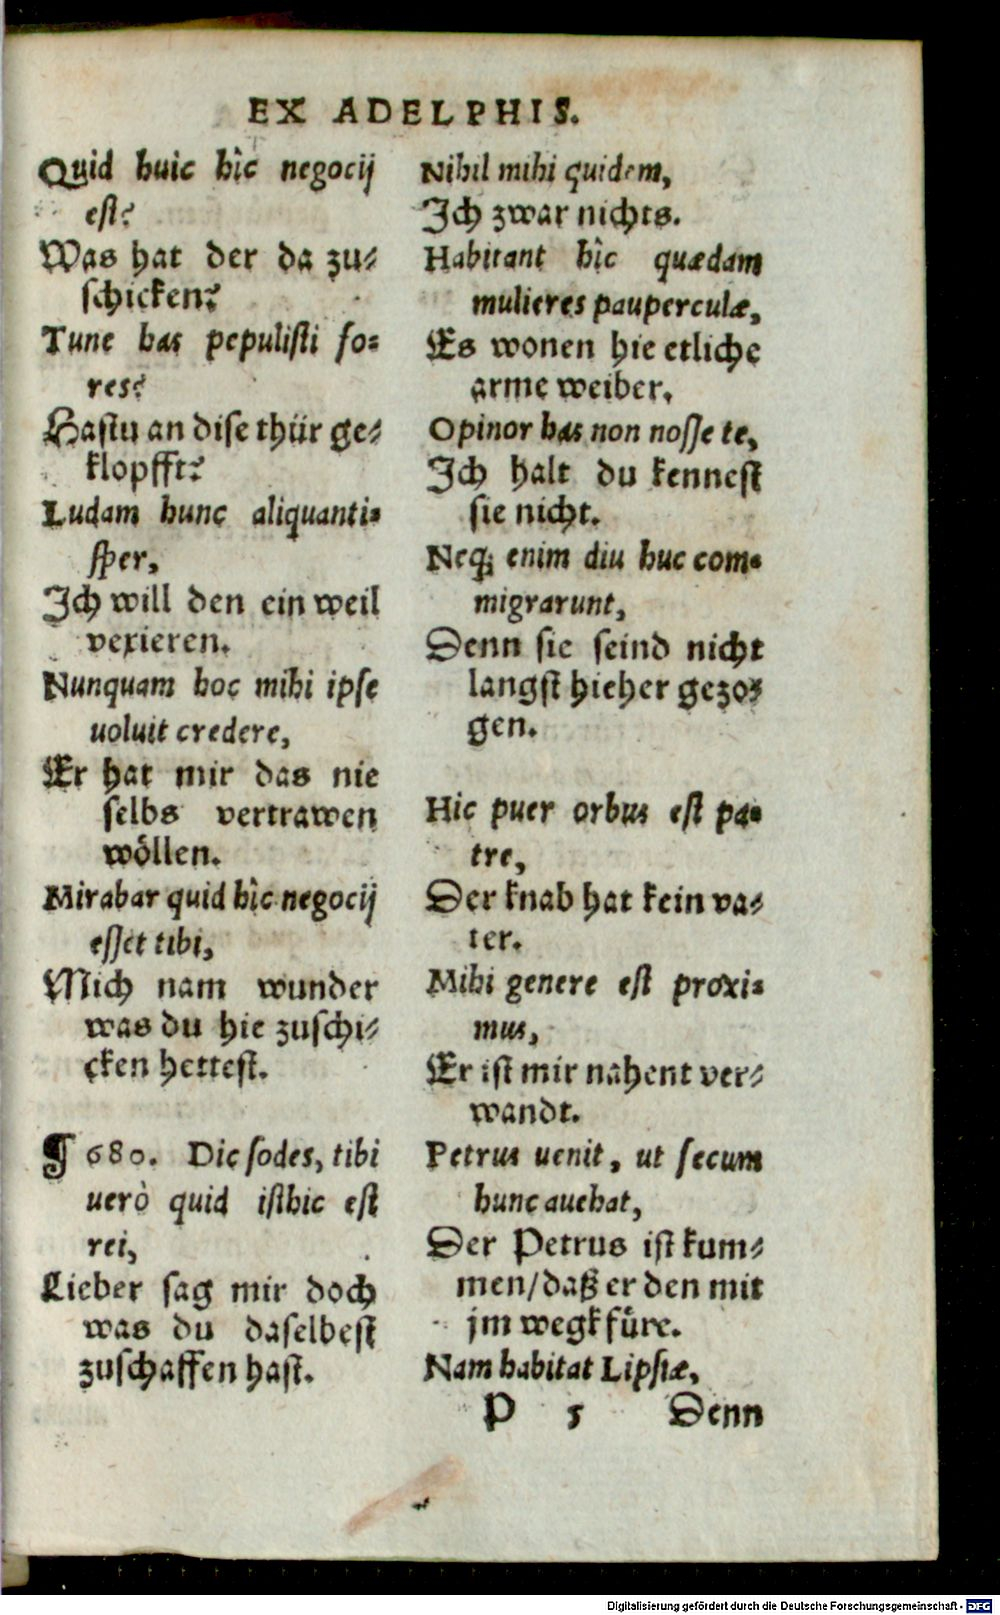 EX ADELPHIS.
Quid huic hìc negocij
est?
Was hat der da zu⸗
schicken?
Tune has pepulisti fo⸗
res?
Hastu an dise thür ge⸗
klopfft?
Ludam hunc aliquanti⸗
sper,
Ich will den ein weil
vexieren.
Nunquam hoc mihi ipse
uoluit credere,
Er hat mir das nie
selbs vertrawen
wöllen.
Mirabar quid hìc negocij
esset tibi,
Mich nam wunder
was du hie zuschi⸗
cken hettest.
¶ 680. Dic sodes, tibi
uerò quid isthic est
rei,
Lieber sag mir doch
was du daselbest
zuschaffen hast.
Nihil mihi quidem,
Ich zwar nichts.
Habitant hìc quædam
mulieres pauperculæ,
Es wonen hie etliche
arme weiber.
Opinor has non nosse te,
Ich halt du kennest
sie nicht.
Neq; enim diu huc com⸗
migrarunt,
Denn sie seind nicht
langst hieher gezo⸗
gen.
Hic puer orbus est pa⸗
tre,
Der knab hat kein va⸗
ter.
Mihi genere est proxi⸗
mus,
Er ist mir nahent ver⸗
wandt.
Petrus uenit, ut secum
hunc auehat,
Der Petrus ist kum⸗
men/daß er den mit
jm wegk füre.
Nam habitat Lipsiæ,
P 5 Denn
Digitalisierung gefördert durch die Deutsche Forschungsgemeinschaft - DFG